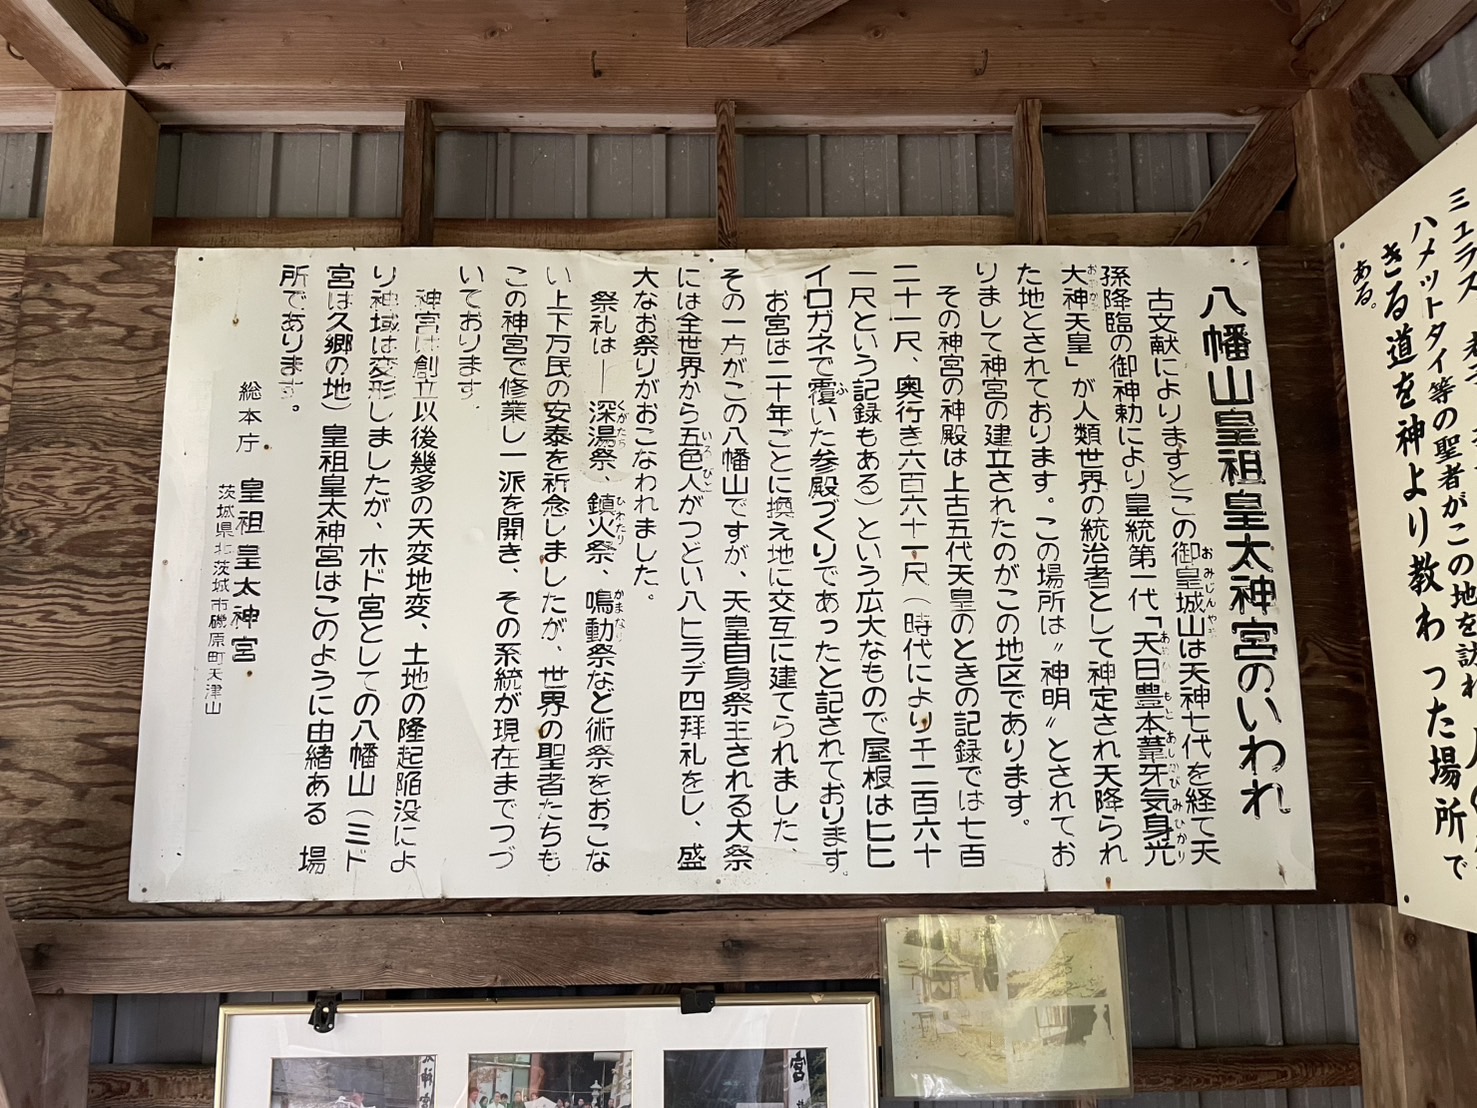 八幡山皇祖皇太神宮のいわれ
古文献によりますとこの御皇城山は天神七代を経て天
おみじんやま
孫降臨の御神勅により皇統第一代「天日豊本葦牙気身光
あめひのもとあしかびみひかり
大神天皇」が人類世界の統治者として神定され天降られ
おおかみ
た地とされております。この場所は〃神明〃とされてお
りまして神宮の建立されたのがこの地区であります。
その神宮の神殿は上古五代天皇のときの記録では七百
二十一尺、奥行き六百六十一尺（時代により千二百六十
一尺という記録もある）という広大なもので屋根はヒヒ
イロガネで覆いた参殿づくりであったと記されております。
ふ
お宮は二十年ごとに換え地に交互に建てられました、
その一方がこの八幡山ですが、天皇自身祭主される大祭
には全世界から五色人がつどい八ヒラデ四拝礼をし、盛
いろひと
大なお祭りがおこなわれました。
祭礼は―深湯祭、鎮火祭、鳴動祭など術祭をおこな
くがたち ひわたり かまなり
い上下万民の安泰を祈念しましたが、世界の聖者たちも
この神宮で修業し一派を開き、その系統が現在までつづ
いております。
神宮は創立以後幾多の天変地変、土地の隆起陥没によ
り神域は変形しましたが、ホド宮としての八幡山（ミド
宮は久郷の地）皇祖皇太神宮はこのように由緒ある 場
所であります。
総本庁 皇祖皇太神宮
茨城県北茨城市磯原町天津山
ハメットタイ等の聖者がこの地を訪れ
きる道を神より教わった場所で
ある。
神宮
宮